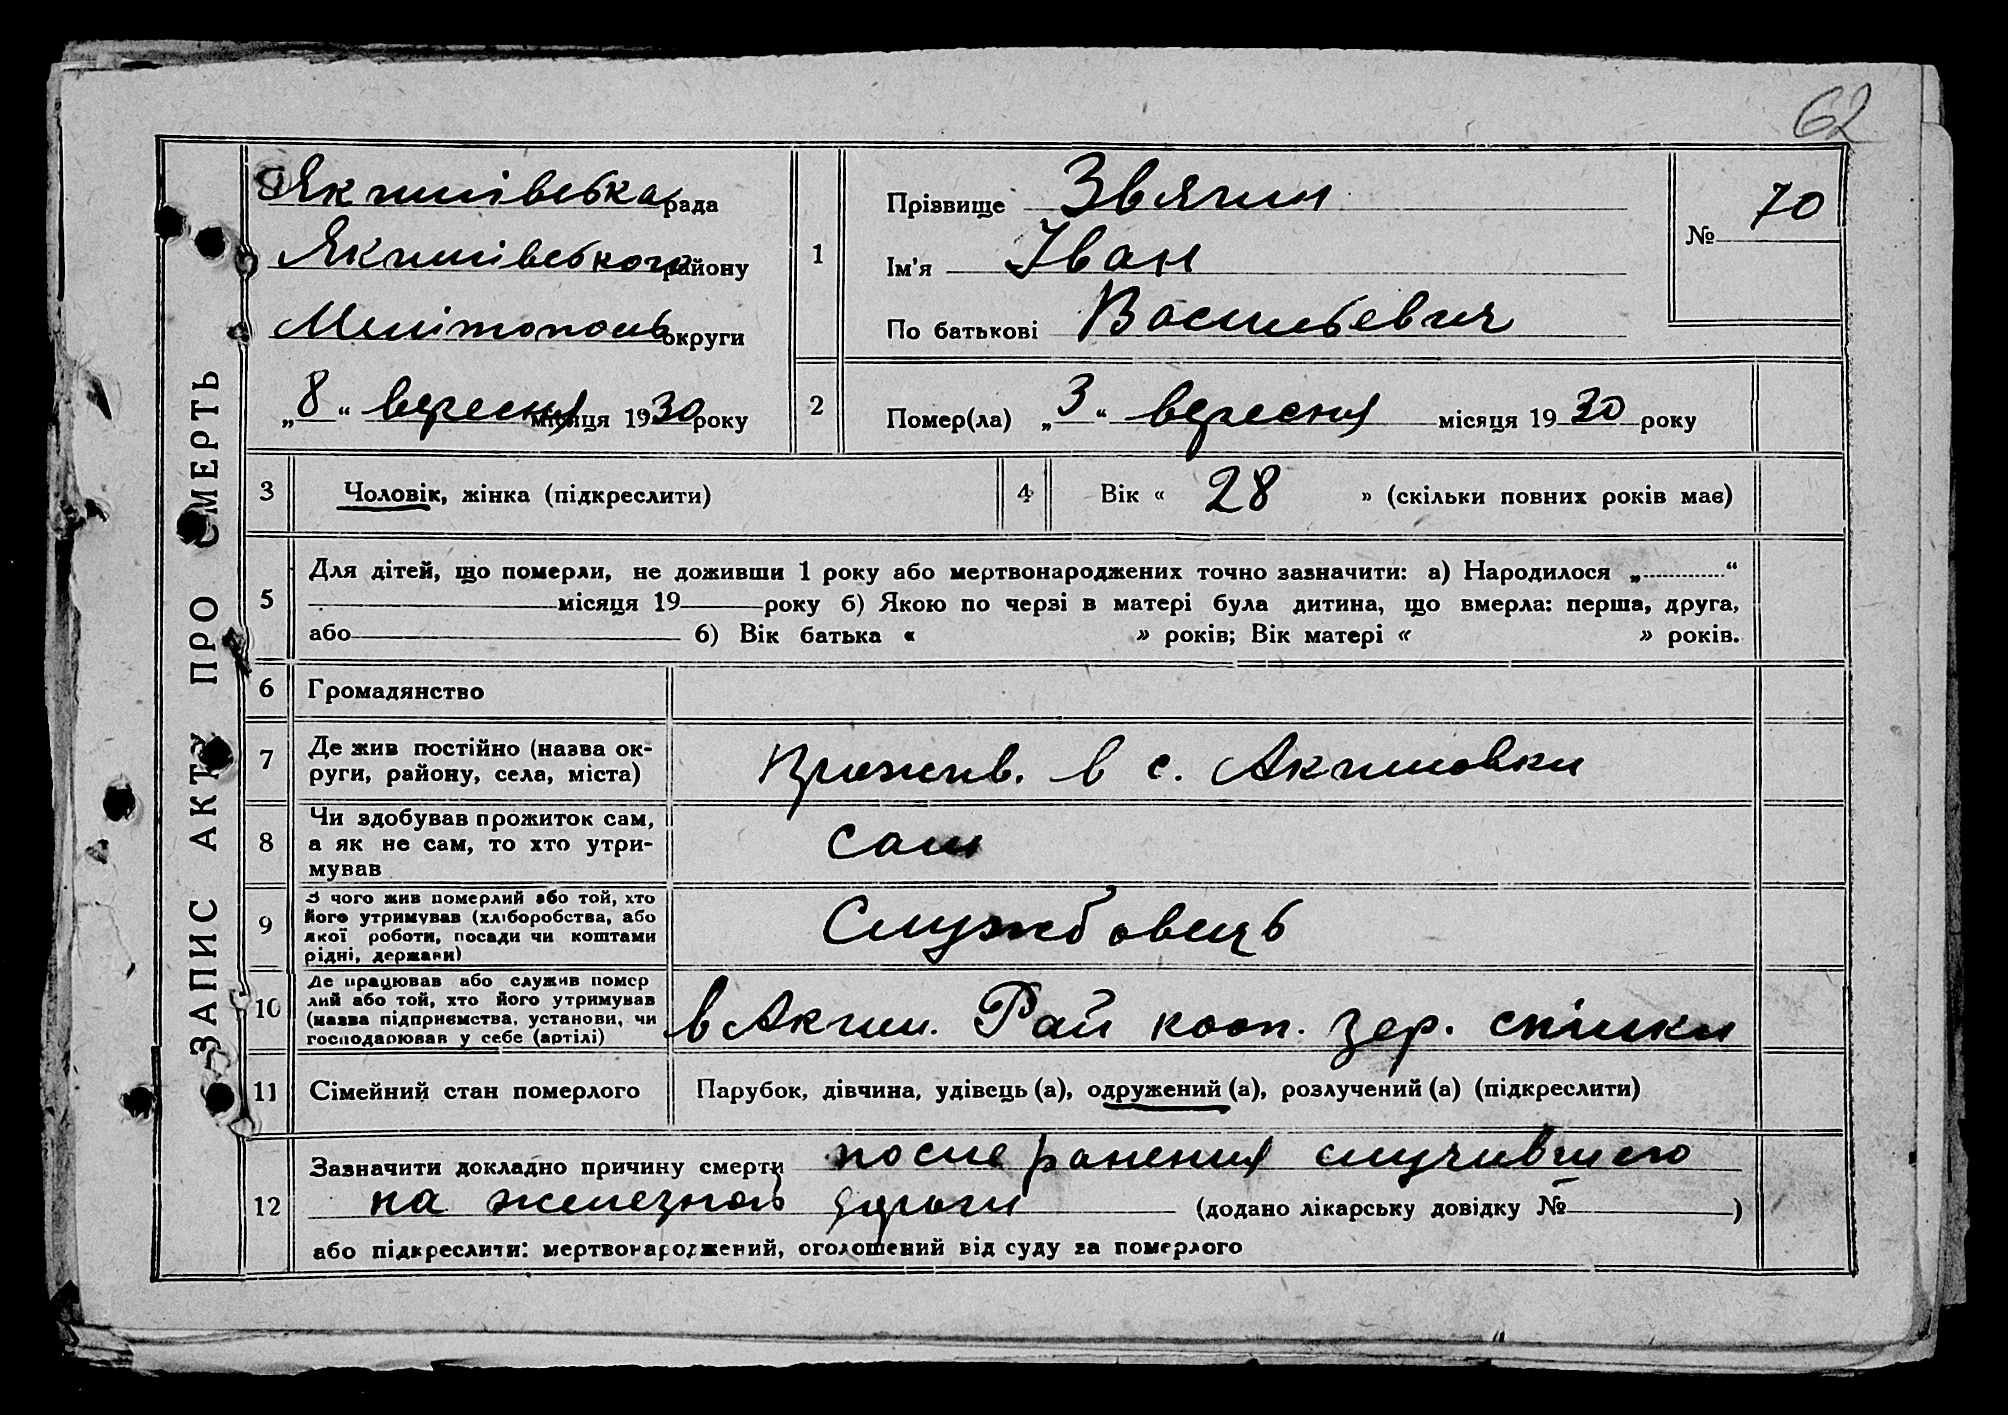 62
ЗАПИС АКТУ ПРО СМЕРТЬ
Якимівська рада
Якимівського району
Мелітополь округи
„8“ вересня місяця 1930 року
1
Прізвище Звягин
Ім'я Іван
По батькові Васильевич
№ 70
2 Помер(ла) „3“ вересня місяця 1930 року
3 Чоловік, жінка (підкреслити)
4 Вік « 28 » (скільки повних років має)
5 Для дітей, що померли, не доживши 1 року або мертвонароджених точно зазначити: а) Народилося „ “
місяця 19 року б) Якою по черзі в матері була дитина, що вмерла: перша, друга,
або б) Вік батька « » років; Вік матері « » років.
6 Громадянство
7 Де жив постійно (назва ок-
руги, району, села, міста)
Прожив. в с. Акимовки
8 Чи здобував прожиток сам,
а як не сам, то хто утри-
мував
сам
9 З чого жив померлий або той, хто
його утримував (хліборобства, або
якої роботи, посади чи коштами
рідні, держави)
Службовець
10 Де працював або служив помер
лий або той, хто його утримував
(назва підприємства, установи, чи
господарював у себе (артілі)
в Аким. Рай кооп. зер. спілки
11 Сімейний стан померлого
Парубок, дівчина, удівець (а), одружений (а), розлучений (а) (підкреслити)
12 Зазначити докладно причину смерти после ранения случившего
на железной дороги (додано лікарську довідку № )
або підкреслити: мертвонароджений, оголошений від суду за померлого